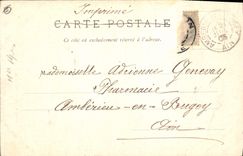 Imprimé
CARTE POSTALE
Ce côté est exclusivement réservé à l'adresse.
Mademoiselle Adrienne Genevay
Pharmacie
Ambérieu-en-Bugey
Ain